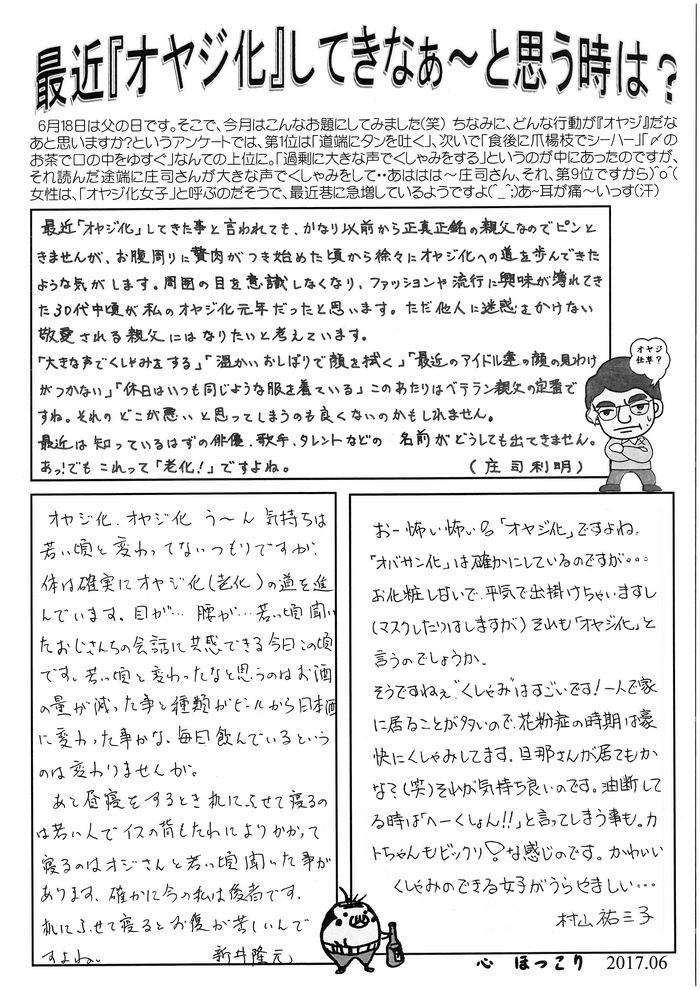 最近『オヤジ化』してきなぁ～と思う時は？
6月18日は父の日です。そこで、今月はこんなお題にしてみました(笑) ちなみに、どんな行動が『オヤジ』だな
あと思いますか？というアンケートでは、第1位は「道端にタンを吐く」、次いで「食後に爪楊枝でシーハー」「〆の
お茶で口の中をゆすぐ」なんての上位に。「過剰に大きな声でくしゃみをする」というのが中にあったのですが、
それ読んだ途端に庄司さんが大きな声でくしゃみをして・・あははは～庄司さん、それ、第9位ですから)^o^(
女性は、「オヤジ化女子」と呼ぶのだそうで、最近巷に急増しているようですよ(^_^;)あ~耳が痛～いっす(汗)
最近「オヤジ化」してきた事と言われても、かなり以前から正真正銘の親父なのでピンと
きませんが、お腹周りに贅肉がつき始めた頃から徐々にオヤジ化への道を歩んできた
ような気がします。周囲の目を意識しなくなり、ファッションや流行に興味が薄れてき
た30代中頃が私のオヤジ化元年だったと思います。ただ他人に迷惑をかけない
敬愛される親父にはなりたいと考えています。
「大きな声でくしゃみをする」「温かいおしぼりで顔を拭く」「最近のアイドル達の顔の見わけ
がつかない」「休日はいつも同じような服を着ている」このあたりはベテラン親父の定番で
すね。それのどこが悪いと思ってしまうのも良くないのかもしれません。
最近は知っているはずの俳優、歌手、タレントなどの 名前がどうしても出てきません。
あっ！でもこれって「老化！」ですよね。 (庄司利明)
オヤジ
仕草？
オヤジ化、オヤジ化 う～ん 気持ちは
若い頃と変わってないつもりですが、
体は確実にオヤジ化(老化)の道を進
んでいます。目が… 腰が… 若い頃聞い
たおじさんちの会話に共感できる今日この頃
です。若い頃と変わったなと思うのはお酒
の量が減った事と種類がビールから日本酒
に変わった事かな、毎日飲んでいるという
のは変わりませんが。
あと昼寝をするとき机にふせて寝るの
は若い人でイスの背もたれによりかかって
寝るのはオジさんと若い頃聞いた事が
あります、確かに今の私は後者です、
机にふせて寝るとお腹が苦しいんで
すよね。 新井隆元
おー怖い怖い「オヤジ化」ですよね。
「オバサン化」は確かにしているのですが。。。
お化粧しないで、平気で出掛けちゃいますし
(マスクしたりはしますが)それも「オヤジ化」と
言うのでしょうか。
そうですねぇ“くしゃみ”はすごいです！一人で家
に居ることが多いので、花粉症の時期は豪
快にくしゃみしてます。旦那さんが居てもか
な？(笑)それが気持ち良いのです。油断して
る時は「へーくしょん！！」と言ってしまう事も。カ
トちゃんもビックリ！な感じのです。かわいい
くしゃみのできる女子がうらやましい…
村山祐三子
心 ほっこり 2017.06